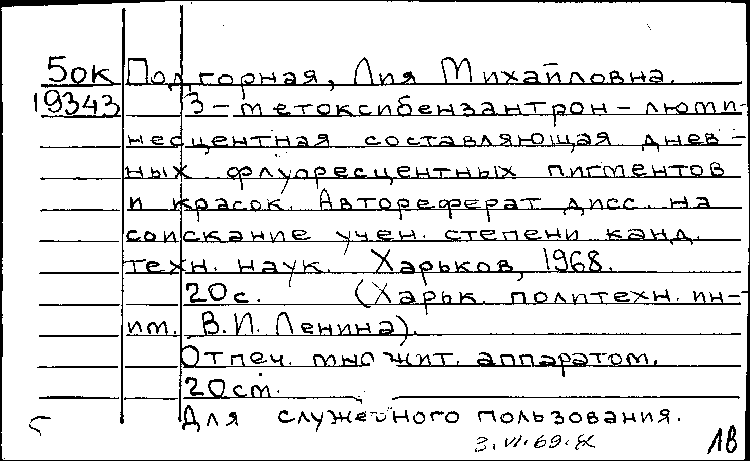 5ок Подгорная, Лия Михайловна.
19343 3-метоксибензантрон-люми-
несцентная составляющая днев-
ных флуоресцентных пигментов
и красок. Автореферат дисс. на
соискание учен. степени канд.
техн. наук. Харьков, 1968.
20с. (Харьк. политехн. ин-
им. В.И. Ленина).
Отпеч. множит. аппаратом.
20см.
Для служебного пользования.
3.VI.69.
18